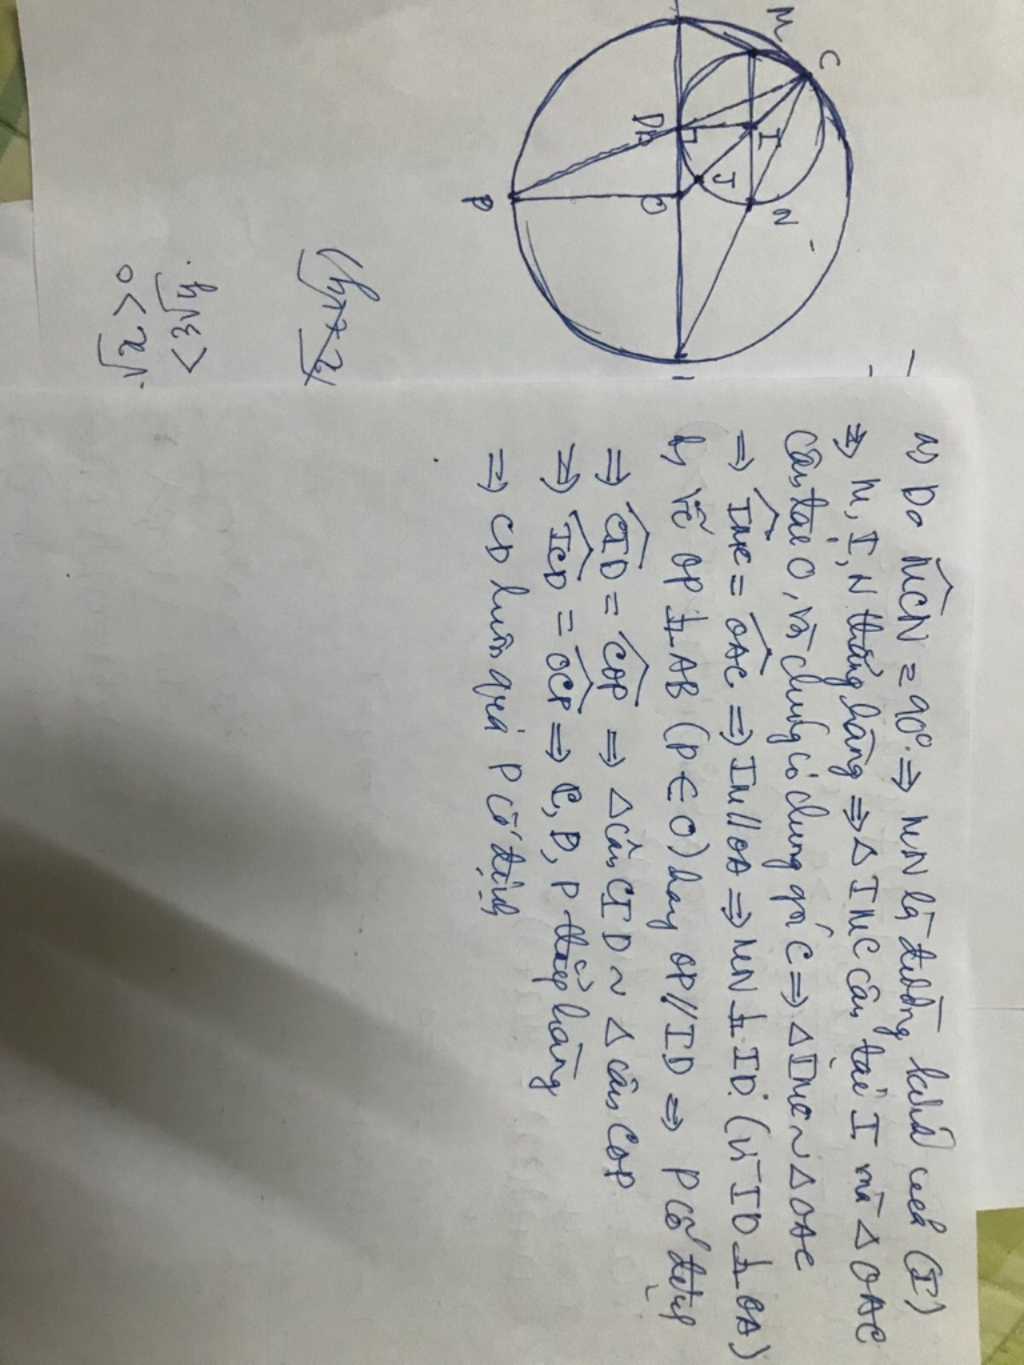 M
C
D
I
J
O
N
P
a) Do MCN = 90° ⇒ MN là đường kính của (I)
⇒ M, I, N thẳng hàng ⇒ Δ IMC cân tại I mà Δ OAC
cân tại O, và chúng có chung góc C ⇒ Δ IMC ~ Δ OAC
⇒ IMC = OAC ⇒ IM // OA ⇒ MN ⊥ ID (vì ID ⊥ OA)
b, Vẽ OP ⊥ AB (P ∈ O) hay OP // ID ⇒ P cố định
⇒ CID = COP ⇒ Δ cân CID ~ Δ cân COP
⇒ ICD = OCP ⇒ C, D, P thẳng hàng
⇒ CD luôn qua P cố định